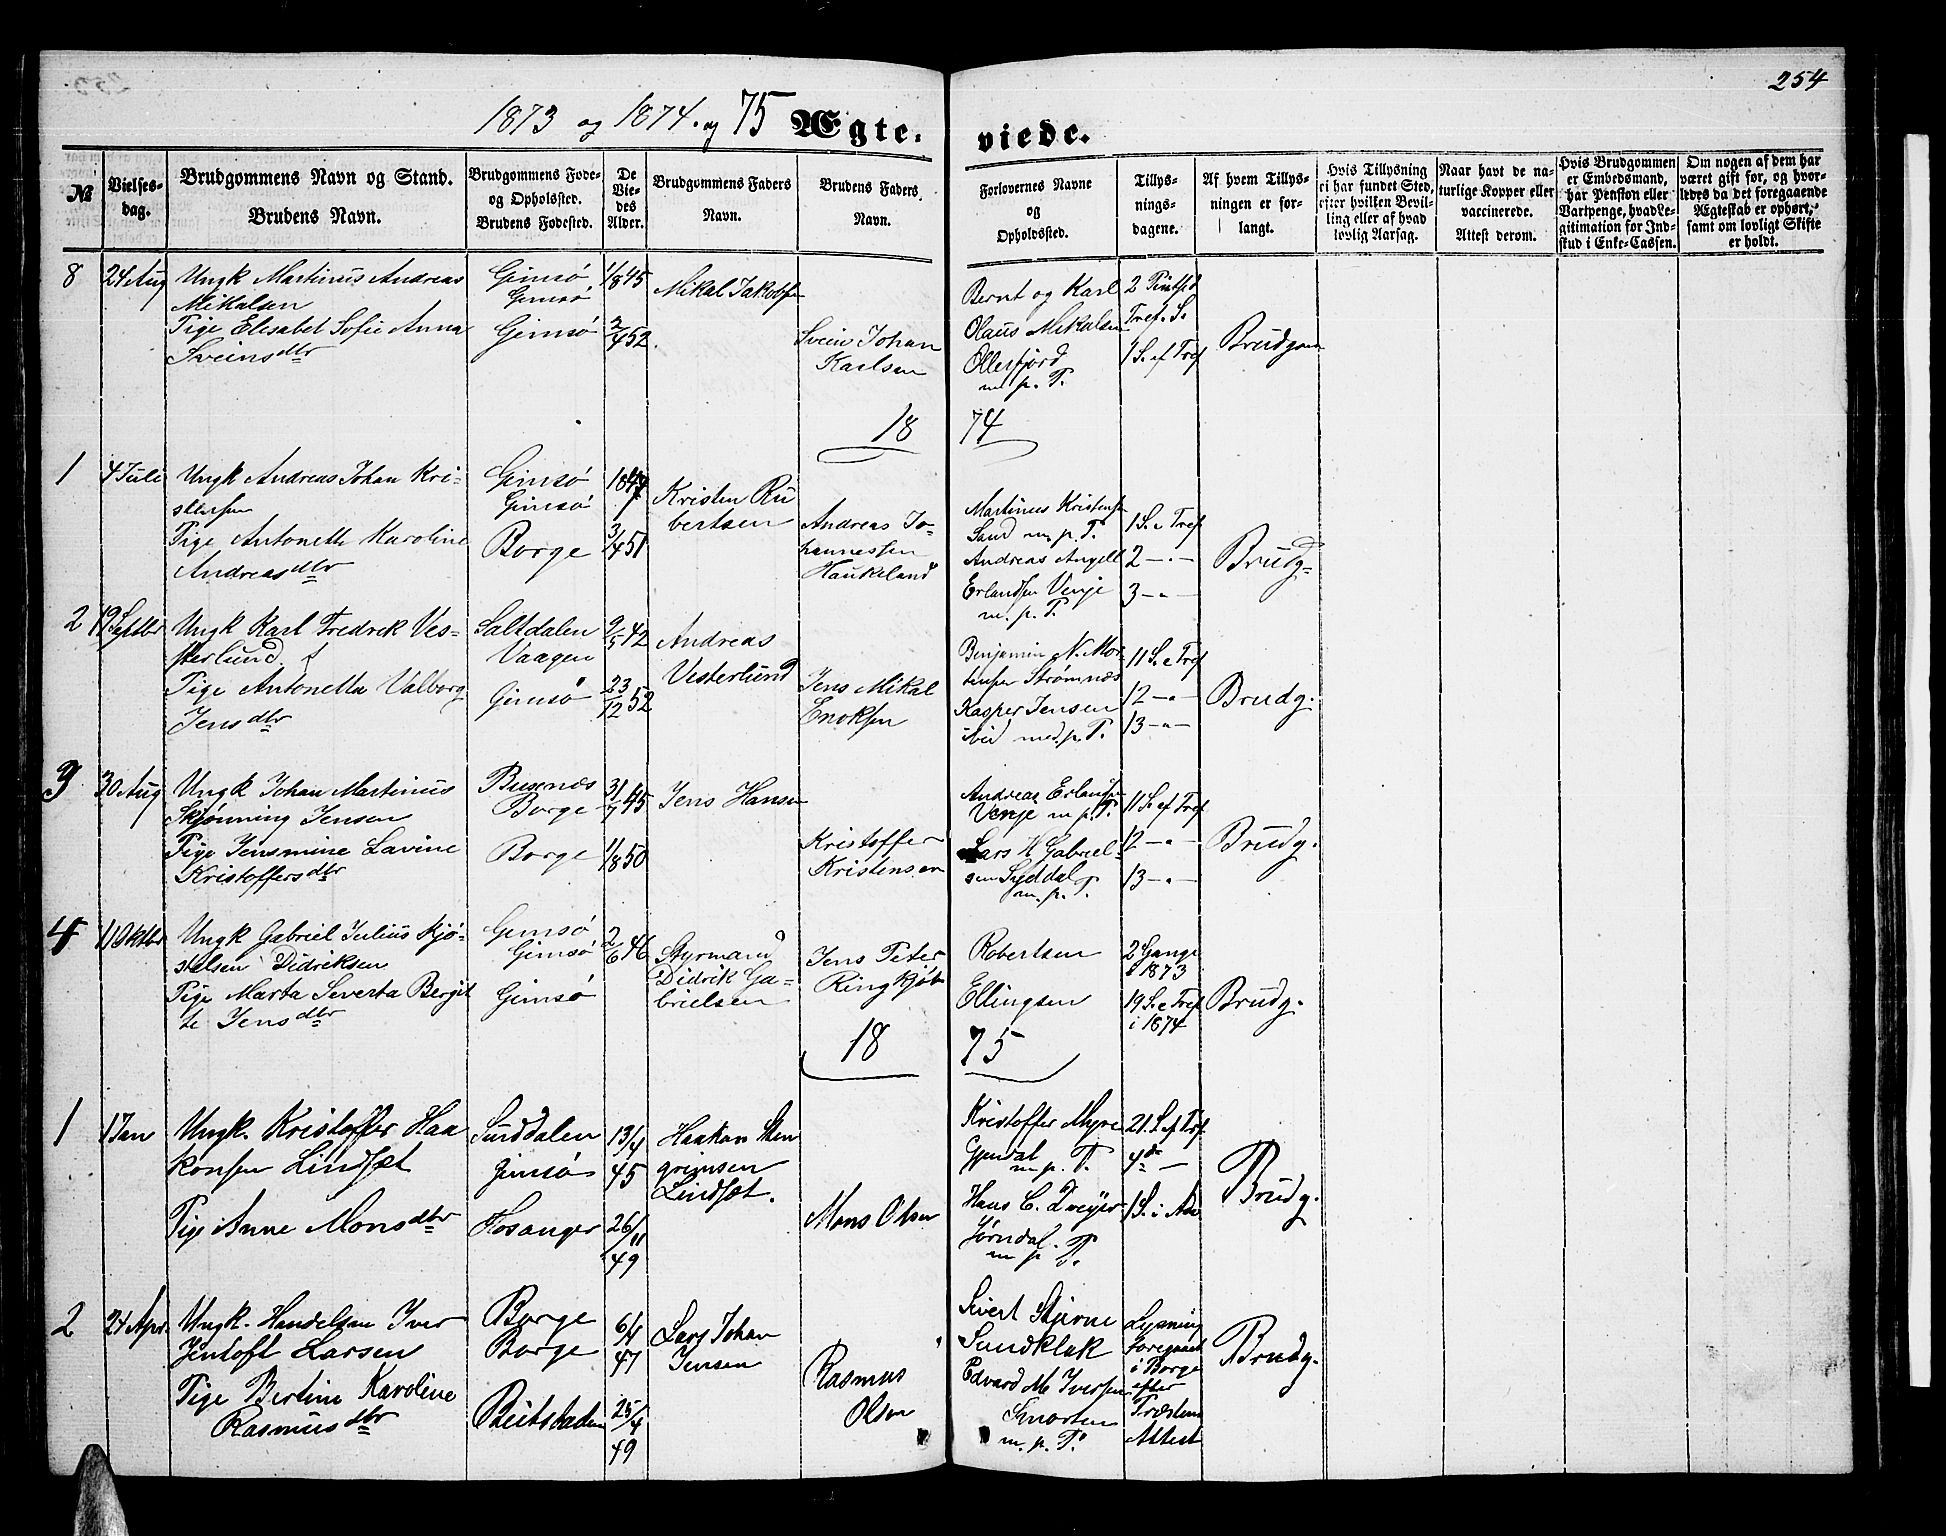 254
1873 og 1874. og 75 Ægte- viede.
№
Vielses-
dag.
Brudgommens Navn og Stand.
Brudens Navn.
Brudgommens Føde-
og Opholdssted.
Brudens Fødested.
De
Vie-
des
Alder.
Brudgommens Faders
Navn.
Brudens Faders
Navn.
Forlovernes Navne
og
Opholdssted.
Tillys-
nings-
dagene.
Af hvem Tillys-
ningen er for-
langt.
Hvis Tillysning
ei har fundet Sted,
efter hvilken Bevil-
ling eller af hvad
lovlig Aarsag.
Naar havt de na-
turlige Kopper eller
vaccinerede.
Attest derom.
Hvis Brudgommen
er Embedsmand,
har Pension eller
Vartpenge, hvad Le-
gitimation for Ind-
skud i Enke-Cassen.
Om nogen af dem har
været gift for, og hvor-
ledes da det foregaaende
Ægteskab er ophørt,
samt om lovligt Skifte
er holdt.
8
24 Aug
Ungk Martinus Andreas
Mikalsen
Pige Elisabet Sofie Anna
Sveinsdtr
Gimsö
Gimsö
Gimsö
1/8 45
2/4 52
Mikal Jakobsen
Svein Johan
Karlsen
Bernt og Karl
Olaus Mikalsen
Ollersfjord
m. p. P.
2 Pintsd
Tref. S.
1 S. ef Tref
Brudgom
18 74
1
4 Juli
Ungk Andreas Johan Kri-
stensen
Pige Antonette Karoline
Andreasdtr
Gimsö
Gimsö
Borge
3/4 51
Kristen Ru
bertsen
Andreas Jo-
hannessen
Haukeland
Martinus Kristensen
Sand m. p. P.
Andreas Angell
Erlandsen Venje
m. p. P.
1 S. e Tref
2 — " —
3 — " —
Brudg-
2
19 Septbr
Ungk Karl Fredrik Ves-
terlund
Pige Antonetta Valborg
Jensdtr
Saltdalen
Vaagen
Gimsö
9/5 42
23/12 52
Andreas
Vesterlund
Jens Mikal
Enoksen
Benjamin N. Mor
tensen Strømnæs
Kasper Jensen
ibid med p. P.
11 S. e Tref
12 — " —
13 — " —
Brudg.
3
30 Aug
Ungk Johan Martinus
Skjönning Jensen
Pige Jensmine Lavine
Kristoffersdtr
Busnæs
Borge
Borge
31/7 45
1/8 50
Jens Hansen
Kristoffer
Kristensen
Andreas Erlandsen
Venje m p. P.
Lars H Gabriel-
sen Syddal
m. p. P.
11 S. ef Tref
12 — " —
13 — " —
Brudg.
4
11 Oktbr
Ungk Gabriel Julius Kjö-
stelsen Didriksen
Pige Marta Severta Bergit
te Jensdtr
Gimsö
Gimsö
Gimsö
2/6 46
Styrmand
Didrik Ga-
brielsen
Jens Peter
Ringkjöb
Robertsen
Ellingsen
2 Gange
i 1873
19 S. e Tref
i 1874
Brudg.
18 75
1
1 Jan
Ungk. Kristoffer Haa
konsen Lindsæt
Pige Anne Monsdtr
Surddalen
Gimsö
Hosanger
13/4
45
26/11
49
Haakon Sten
grimsen
Lindsæt.
Mons Olsen
Kristoffer Myre
Gjendal
m. p. P.
Hans C. Dreyer
Jörndal.
m p P.
21. S. ef Trf
4de —
1 S. i Adv
Brudg.
2
24 Apr.
Ungk. Handelsm Iver
Jentoft Larsen
Pige Bertine Karoline
Rasmusdtr
Borge
Borge
Beitstaden
6/4
47
25/4
49
Lars Johan
Jensen
Rasmus
Olsen
Sivert Stjerne
Sundklak
Edvard M. Iversen
Smorten
m. p. P.
Lysning
foregaaet
i Borge
efter
Præstens
Attest
Brudg.